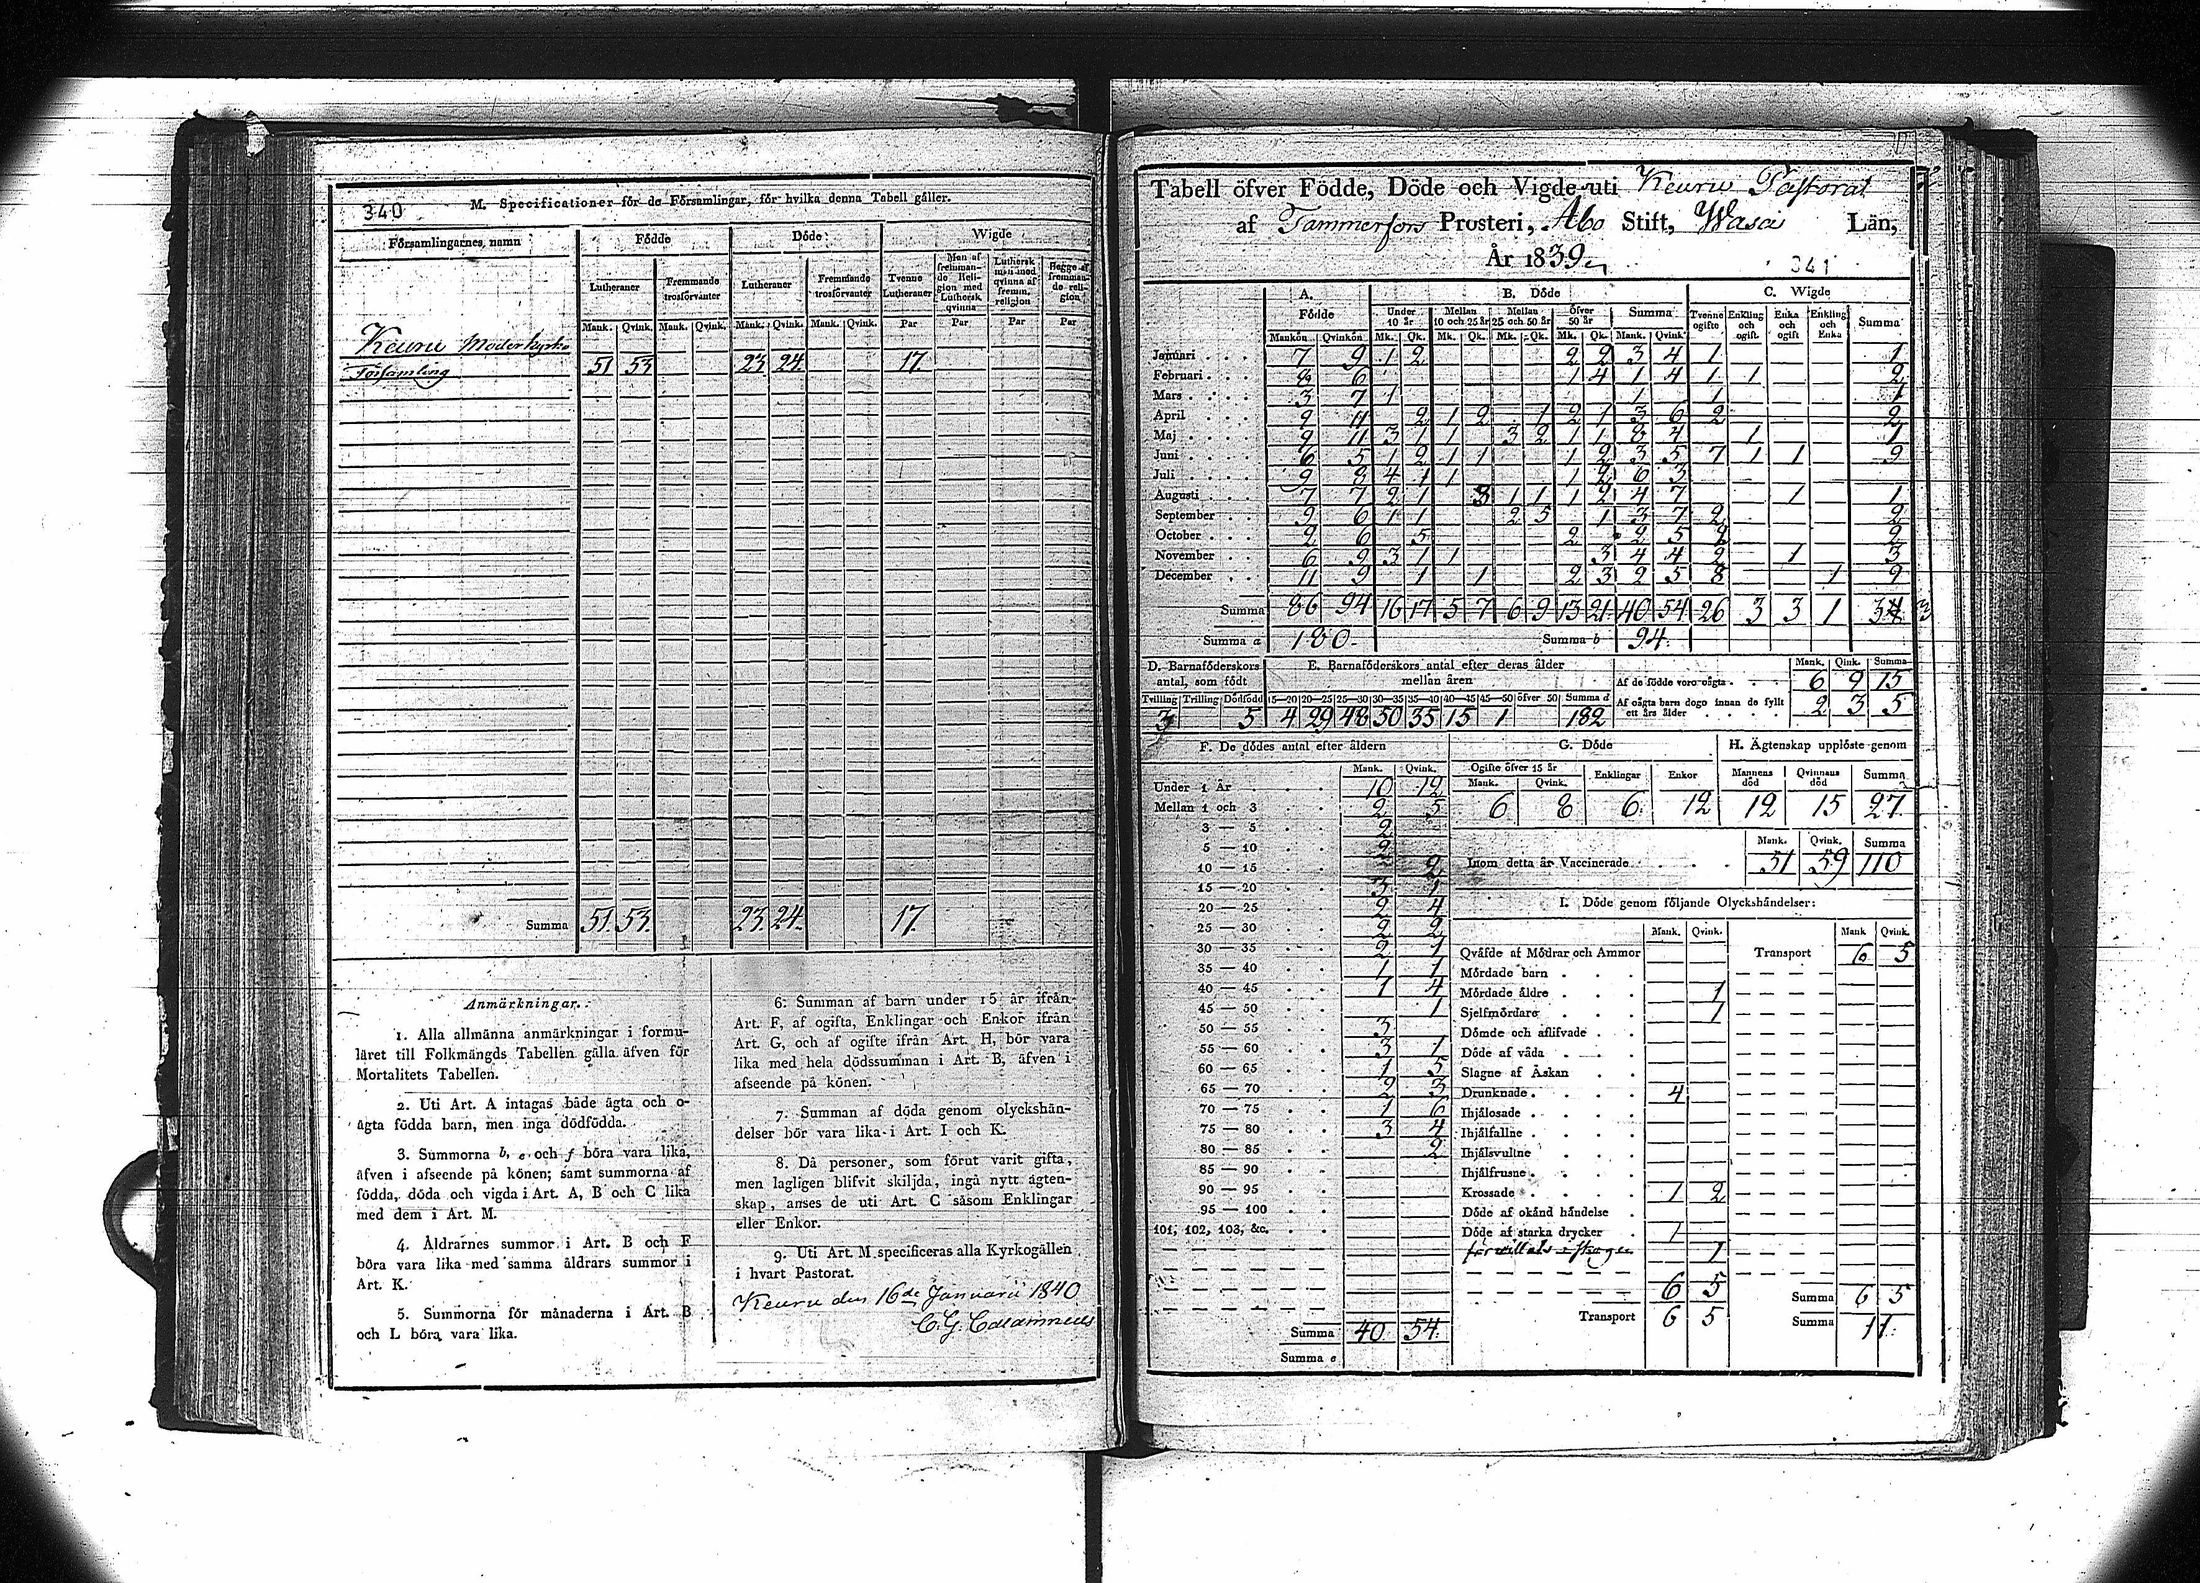 340
M. Specificationer för de Församlingar, för hvilka denna Tabell gäller.
Församlingarnes namn | Födde | Döde | Wigde
Lutheraner | Fremmande trosförvanter | Lutheraner | Fremmande trosförvanter | Tvenne Lutheraner | Man af fremmande Religion med Luthersk qvinna | Luthersk man med qvinna af fremm. religion | Begge af fremmande religion
Mank. | Qvink. | Mank. | Qvink. | Mank. | Qvink. | Mank. | Qvink. | Par | Par | Par | Par
Keuru Moderkyrko
Församling | 51 | 53 | 23 | 24 | 17.
Summa | 51. | 53. | 23. | 24. | 17.
Anmärkningar.
1. Alla allmänna anmärkningar i formu-
läret till Folkmängds Tabellen gälla äfven för
Mortalitets Tabellen.
2. Uti Art. A intagas både ägta och o-
ägta födda barn, men inga dödfödda.
3. Summorna b, e och f böra vara lika,
äfven i afseende på könen; samt summorna af
födda, döda och vigda i Art. A, B och C lika
med dem i Art. M.
4. Åldrarnes summor i Art. B och F
böra vara lika med samma åldrars summor i
Art. K.
5. Summorna för månaderna i Art. B
och L böra vara lika.
6. Summan af barn under 15 år ifrån
Art. F, af ogifta, Enklingar och Enkor ifrån
Art. G, och af ogifte ifrån Art. H, bör vara
lika med hela dödssumman i Art. B, äfven i
afseende på könen.
7. Summan af döda genom olyckshän-
delser bör vara lika i Art. I och K.
8. Då personer, som förut varit gifta,
men lagligen blifvit skiljda, ingå nytt ägten-
skap, anses de uti Art. C såsom Enklingar
eller Enkor.
9. Uti Art. M specificeras alla Kyrkogällen
i hvart Pastorat.
Keuru den 16de Januarii 1840
C. G. Calamnius
Tabell öfver Födde, Döde och Vigde uti Keuru Pastorat
af Tammerfors Prosteri, Åbo Stift, Wasa Län,
År 1839.
341
A. Födde | B. Döde | C. Wigde
Under 10 år | Mellan 10 och 25 år | Mellan 25 och 50 år | Öfver 50 år | Summa | Tvenne ogifte | Enkling och ogift | Enka och ogift | Enkling och Enka | Summa
Mankön | Qvinkön | Mk. | Qk. | Mk. | Qk. | Mk. | Qk. | Mk. | Qk. | Mank. | Qvink.
Januari | 7 | 9 | 1 | 2 | 2 | 2 | 3 | 4 | 1 | 1
Februari | 8 | 6 | 1 | 4 | 1 | 4 | 1 | 1 | 2
Mars | 3 | 7 | 1 | 1 | 1 | 1
April | 9 | 11 | 2 | 1 | 2 | 1 | 2 | 1 | 3 | 6 | 2 | 2
Maj | 9 | 11 | 3 | 1 | 1 | 3 | 2 | 1 | 1 | 8 | 4 | 1 | 1
Juni | 6 | 5 | 1 | 2 | 1 | 1 | 1 | 2 | 3 | 5 | 7 | 1 | 1 | 9
Juli | 9 | 8 | 4 | 1 | 1 | 1 | 2 | 6 | 3
Augusti | 7 | 7 | 2 | 1 | 3 | 1 | 1 | 1 | 2 | 4 | 7 | 1 | 1
September | 9 | 6 | 1 | 1 | 2 | 5 | 1 | 3 | 7 | 2 | 2
October | 2 | 6 | 5 | 2 | 2 | 5 | 2 | 2
November | 6 | 9 | 3 | 1 | 1 | 3 | 4 | 4 | 2 | 1 | 3
December | 11 | 9 | 1 | 1 | 2 | 3 | 2 | 5 | 8 | 1 | 9
Summa | 86 | 94 | 16 | 17 | 5 | 7 | 6 | 9 | 13 | 21 | 40 | 54 | 26 | 3 | 3 | 1 | 3
Summa a | 180. | Summa b | 94.
D. Barnaföderskors antal, som födt | E. Barnaföderskors antal efter deras ålder mellan åren | Mank. | Qink. | Summa
Af de födde voro oägta | 6 | 9 | 15
Tvilling | Trilling | Dödfödd | 15—20 | 20—25 | 25—30 | 30—35 | 35—40 | 40—45 | 45—50 | öfver 50 | Summa d
3 | 5 | 4 | 29 | 48 | 50 | 35 | 15 | 1 | 182
Af oägta barn dogo innan de fyllt ett års ålder | 2 | 3 | 5
F. De dödes antal efter åldern
Mank. | Qvink.
Under 1 År | 10 | 12
Mellan 1 och 3 | 2 | 5
3 — 5 | 2
5 — 10 | 2
10 — 15 | 2
15 — 20 | 3 | 1
20 — 25 | 2 | 4
25 — 30 | 2 | 2
30 — 35 | 2 | 1
35 — 40 | 1 | 1
40 — 45 | 1 | 4
45 — 50 | 1
50 — 55 | 3
55 — 60 | 3 | 1
60 — 65 | 1 | 5
65 — 70 | 2 | 3
70 — 75 | 1 | 6
75 — 80 | 3 | 4
80 — 85 | 2
85 — 90
90 — 95
95 — 100
101, 102, 103, &c.
Summa | 40 | 54.
Summa e
G. Döde | H. Ägtenskap upplöste genom
Ogifte öfver 15 år | Enklingar | Enkor | Mannens död | Qvinnans död | Summa
Mank. | Qvink.
6 | 8 | 6. | 12 | 12 | 15 | 27.
Mank. | Qvink. | Summa
Inom detta år Vaccinerade | 51 | 59 | 110
I. Döde genom följande Olyckshändelser:
Mank. | Qvink. | Mank | Qvink.
Qväfde af Mödrar och Ammor | Transport | 6 | 5
Mördade barn
Mördade äldre | 1
Sjelfmördare | 1
Dömde och aflifvade
Döde af våda
Slagne af Åskan
Drunknade | 4
Ihjälosade
Ihjälfallne
Ihjälsvultne
Ihjälfrusne
Krossade | 1 | 2
Döde af okänd händelse
Döde af starka drycker | 1
1
6 | 5 | Summa | 6 | 5
Transport | 6 | 5 | Summa | 11.